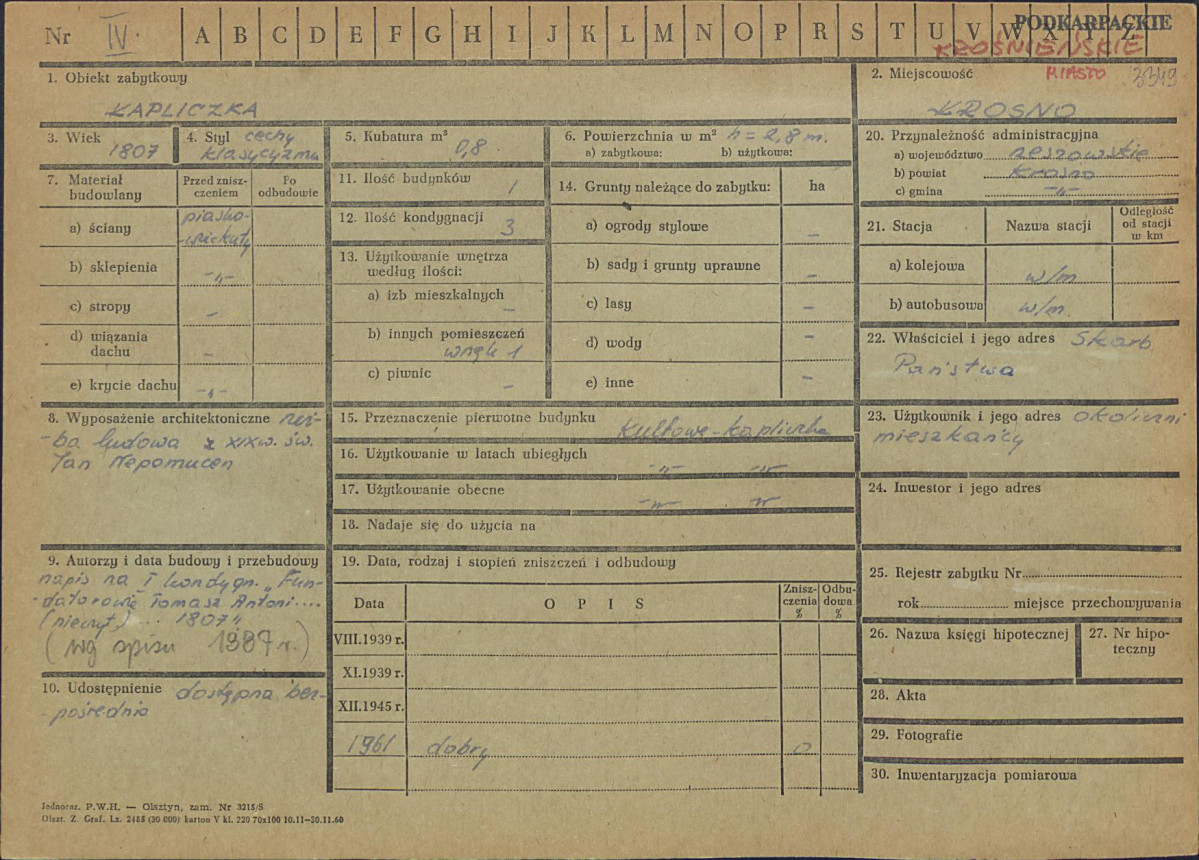 Nr IV. A B C D E F G H I J K L M N O P R S T U V W X Y Z
PODKARPACKIE
KROŚNIEŃSKIE
MIASTO 3349
1. Obiekt zabytkowy
KAPLICZKA
2. Miejscowość
KROSNO
3. Wiek
1807
4. Styl cechy
klasycyzmu
5. Kubatura m³
0,8
6. Powierzchnia w m² h = 2,8 m.
a) zabytkowa: b) użytkowa:
20. Przynależność administracyjna
a) województwo rzeszowskie
b) powiat Krosno
c) gmina -"-
7. Materiał budowlany
Przed zniszczeniem
Po odbudowie
a) ściany piasko-
-wiec kuty
b) sklepienia -"-
c) stropy -
d) wiązania
dachu -
e) krycie dachu -"-
11. Ilość budynków 1
12. Ilość kondygnacji 3
13. Użytkowanie wnętrza
według ilości:
a) izb mieszkalnych -
b) innych pomieszczeń
wnęk 1
c) piwnic -
14. Grunty należące do zabytku: ha
a) ogrody stylowe -
b) sady i grunty uprawne -
c) lasy -
d) wody -
e) inne -
21. Stacja
Nazwa stacji
Odległość
od stacji
w km
a) kolejowa w/m
b) autobusowa w/m.
22. Właściciel i jego adres Skarb
Państwa
8. Wyposażenie architektoniczne rzeź-
-ba ludowa z XIXw. św.
Jan Nepomucen
15. Przeznaczenie pierwotne budynku
kultowe - kapliczka
16. Użytkowanie w latach ubiegłych
-"- -"-
17. Użytkowanie obecne
-"- -"-
18. Nadaje się do użycia na
23. Użytkownik i jego adres okoliczni
mieszkańcy
24. Inwestor i jego adres
9. Autorzy i data budowy i przebudowy
napis na I kondygn. „Fun-
-datorowię Tomasz Antoni....
(nieczyt.) ... 1807"
(wg spisu 1987 r.)
10. Udostępnienie dostępna bez-
-pośrednio
19. Data, rodzaj i stopień zniszczeń i odbudowy
Data
O P I S
Znisz-
czenia
%
Odbu-
dowa
%
VIII.1939 r.
XI.1939 r.
XII.1945 r.
1961 dobry 0
25. Rejestr zabytku Nr
rok miejsce przechowywania
26. Nazwa księgi hipotecznej
27. Nr hipo-
teczny
28. Akta
29. Fotografie
30. Inwentaryzacja pomiarowa
Jednoraz. P.W.H. — Olsztyn, zam. Nr 3215/S
Olszt. Z. Graf. Lz. 2485 (30 000) karton V kl. 220 70x100 10.11—30.11.60